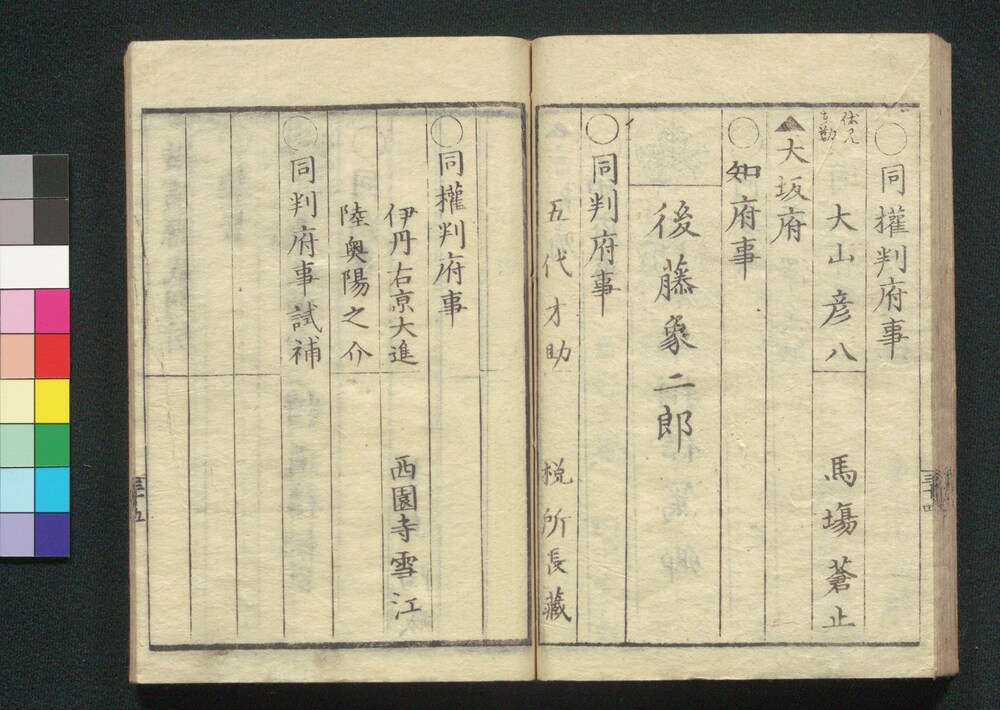 ○同權判府事
伏見
大山彦八 馬塲蒼止
▲大坂府
○知府事
後藤象二郎
○同判府事
五代才助 税所長藏
○同權判府事
伊丹右京大進 西園寺雪江
陸奥陽之介
○同判府事試補
三十四
三十五